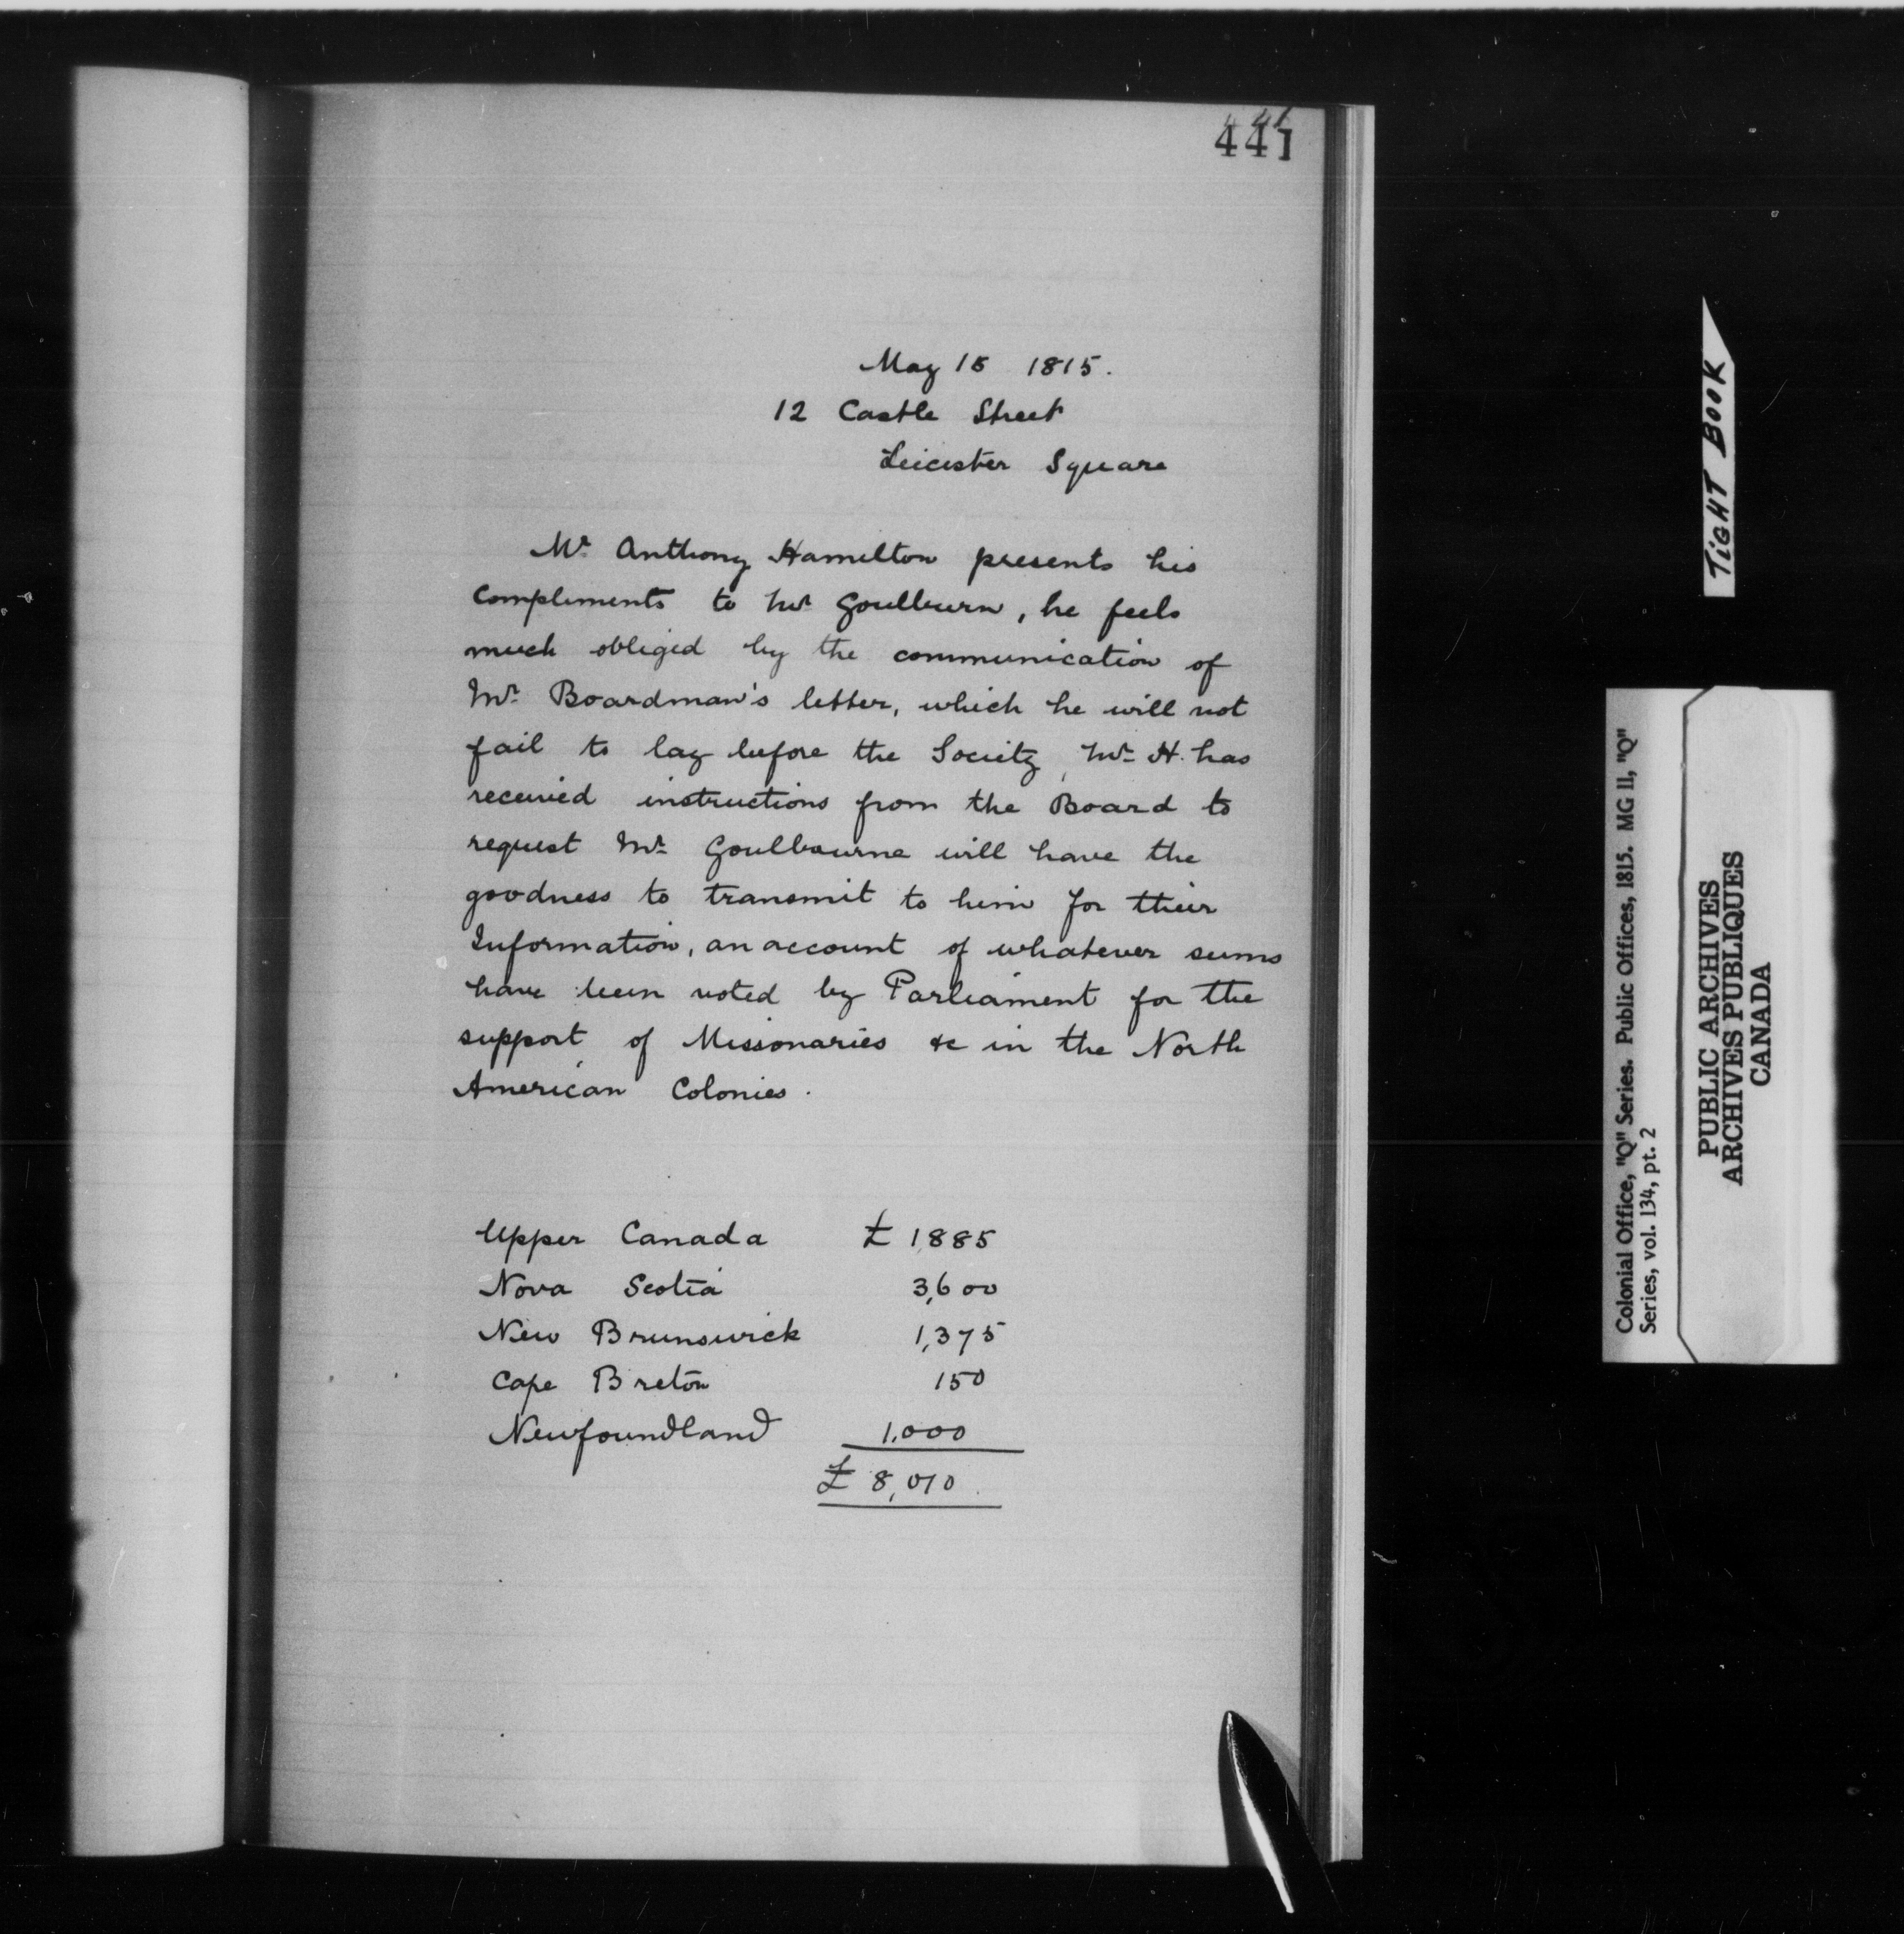 441
May 15 1815.
12 Castle Street
Leicester Square
Mr Anthony Hamilton presents his
compliments to Mr Goulburn, he feels
much obliged by the communication of
Mr Boardman's letter, which he will not
fail to lay before the Society, Mr H. has
received instructions from the Board to
request Mr Goulbourne will have the
goodness to transmit to him for their
Information, an account of whatever sums
have been voted by Parliament for the
support of Missonaries &c in the North
American Colonies.
Upper Canada £ 1,885
Nova Scotia 3,600
New Brunswick 1,375
Cape Breton 150
Newfoundland 1,000
£ 8,010.
TIGHT BOOK
Colonial Office, "Q" Series. Public Offices, 1815. MG 11, "Q"
Series, vol. 134, pt. 2
PUBLIC ARCHIVES
ARCHIVES PUBLIQUES
CANADA